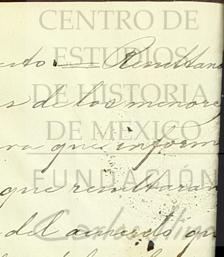 CENTRO DE
ESTUDIOS
DE HISTORIA
DE MEXICO
FUNDACIÓN
Carlos Slim
Remitan
s de los menores
que inform
que resultaran
del acuerdo qu